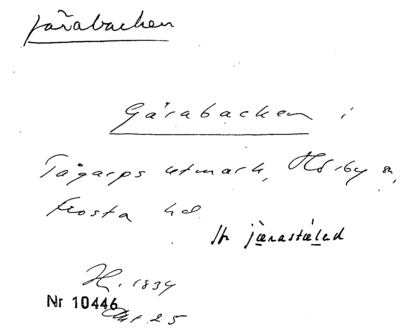 järabacken
Gärabacken i
Tågarps utmark, Hörby sn,
Frosta hd.
järastäled
1834
Nr 10446
25